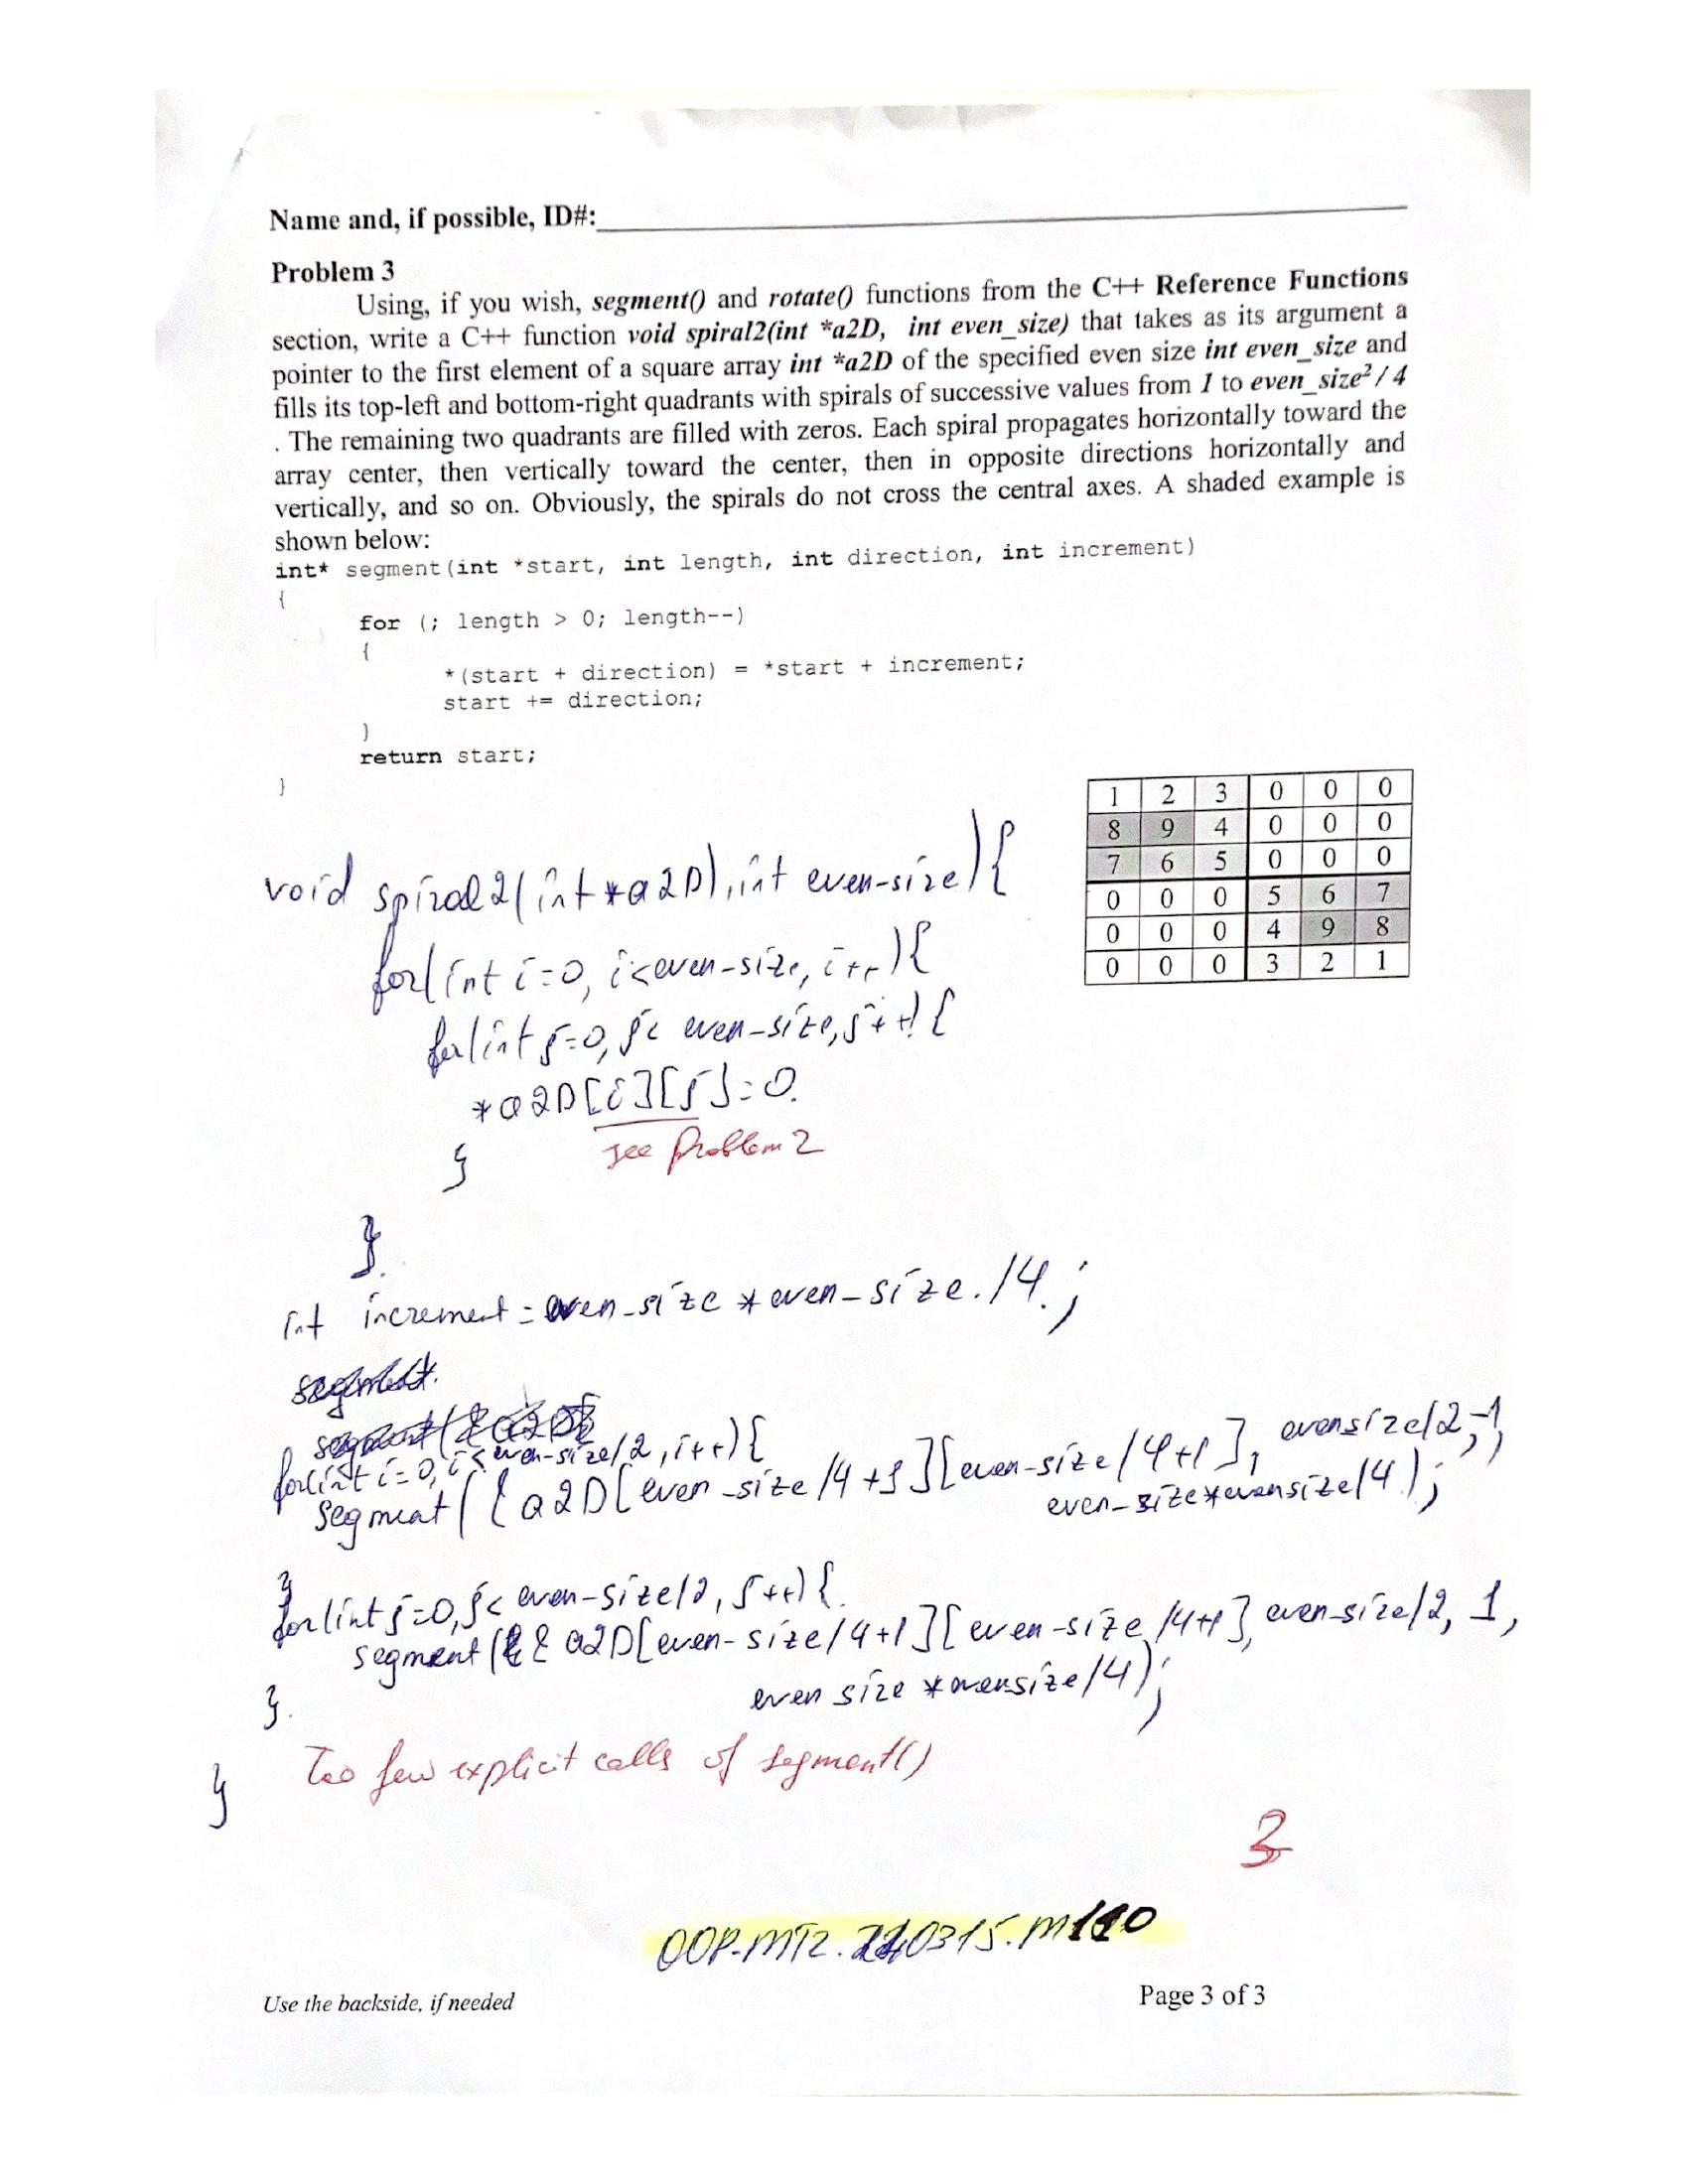 Name and, if possible, ID#:
Problem 3
Using, if you wish, segment() and rotate() functions from the C++ Reference Functions
section, write a C++ function void spiral2(int *a2D, int even_size) that takes as its argument a
pointer to the first element of a square array int *a2D of the specified even size int even_size and
fills its top-left and bottom-right quadrants with spirals of successive values from 1 to even_size²/4
. The remaining two quadrants are filled with zeros. Each spiral propagates horizontally toward the
array center, then vertically toward the center, then in opposite directions horizontally and
vertically, and so on. Obviously, the spirals do not cross the central axes. A shaded example is
shown below:
int* segment(int *start, int length, int direction, int increment)
{
for (; length > 0; length--)
{
*(start + direction) = *start + increment;
start += direction;
}
return start;
}
1 2 3 0 0 0
8 9 4 0 0 0
7 6 5 0 0 0
0 0 0 5 6 7
0 0 0 4 9 8
0 0 0 3 2 1
void spiral2(int *a2D), int even-size){
for(int i=0, i<even-size, i++){
for(int j=0, j< even-size, j++){
*a2D[i][j]=0.
}
see Problem 2
}.
int increment = even_size * even-size./4.;
for(int i=0, i<even-size/2, i++){
segment(&a2D[even-size/4+1][even-size/4+1], evensize/2,-1,
even-size*evensize/4);
}
for(int j=0, j< even-size/2, j++){
segment(& a2D[even-size/4+1][even-size/4+1], even-size/2, 1,
even size * evensize/4);
}.
}
Too few explicit calls of segment()
OOP-MT2.220315.M110
Use the backside, if needed
Page 3 of 3